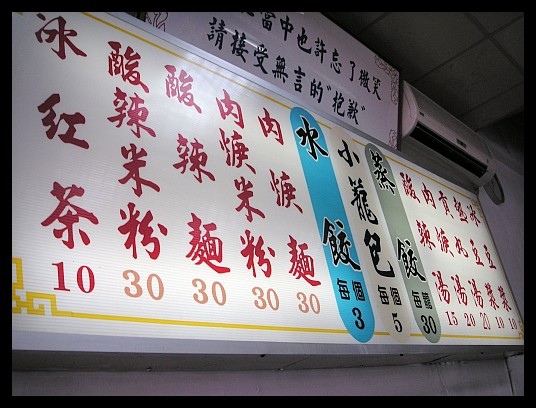 當中也許忘了微笑
請接受無言的"抱歉"
冰紅茶 10
酸辣米粉 30
酸辣麵 30
肉焿米粉 30
肉焿麵 30
水餃 每個3
小籠包 每個5
蒸餃 每籠30
酸辣湯 15
肉焿湯 20
貢丸湯 20
豆漿 10
冰豆漿 10